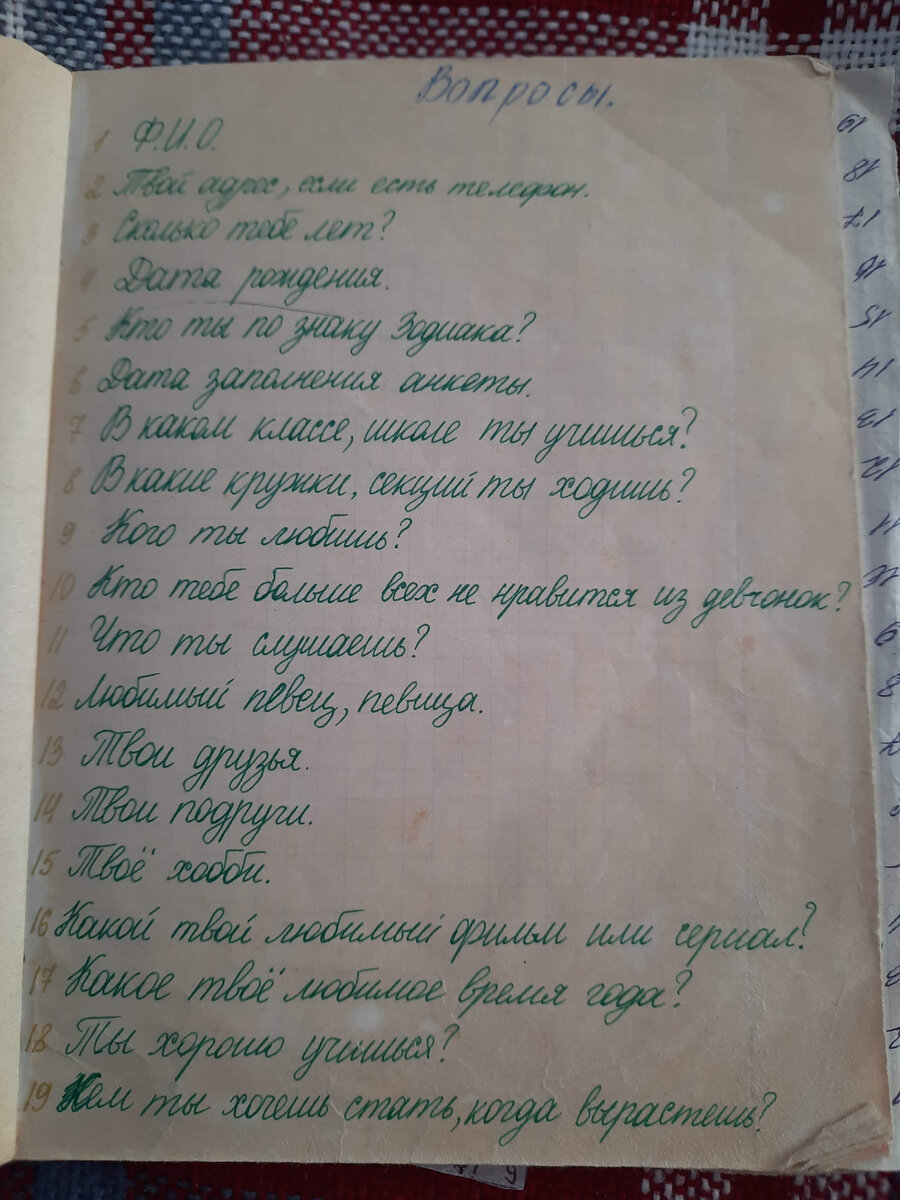 Вопросы.
1 Ф.И.О.
2 Твой адрес, если есть телефон.
3 Сколько тебе лет?
4 Дата рождения.
5 Кто ты по знаку Зодиака?
6 Дата заполнения анкеты.
7 В каком классе, школе ты учишься?
8 В какие кружки, секций ты ходишь?
9 Кого ты любишь?
10 Кто тебе больше всех не нравится из девчонок?
11 Что ты слушаешь?
12 Любимый певец, певица.
13 Твои друзья.
14 Твои подруги.
15 Твоё хобби.
16 Какой твой любимый фильм или сериал?
17 Какое твоё любимое время года?
18 Ты хорошо учишься?
19 Кем ты хочешь стать, когда вырастешь?
19
18
17
16
15
14
13
12
11
10
9
8
7